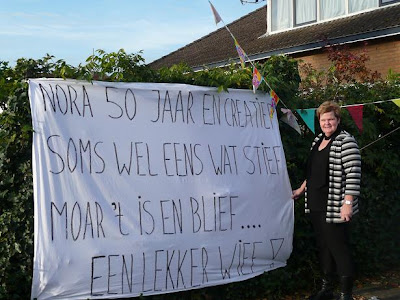 NORA 50 JAAR EN CREATIEF
SOMS WEL EENS WAT STIEF
MOAR 't IS EN BLIEF....
EEN LEKKER WIEF!